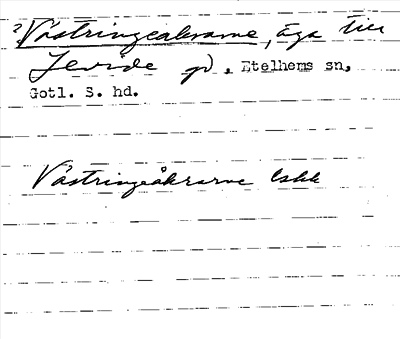 ?Västringeakrarne, äga till
Jevide gd, Etelhems sn,
Gotl. S. hd.
Västringeåkrarne lskk